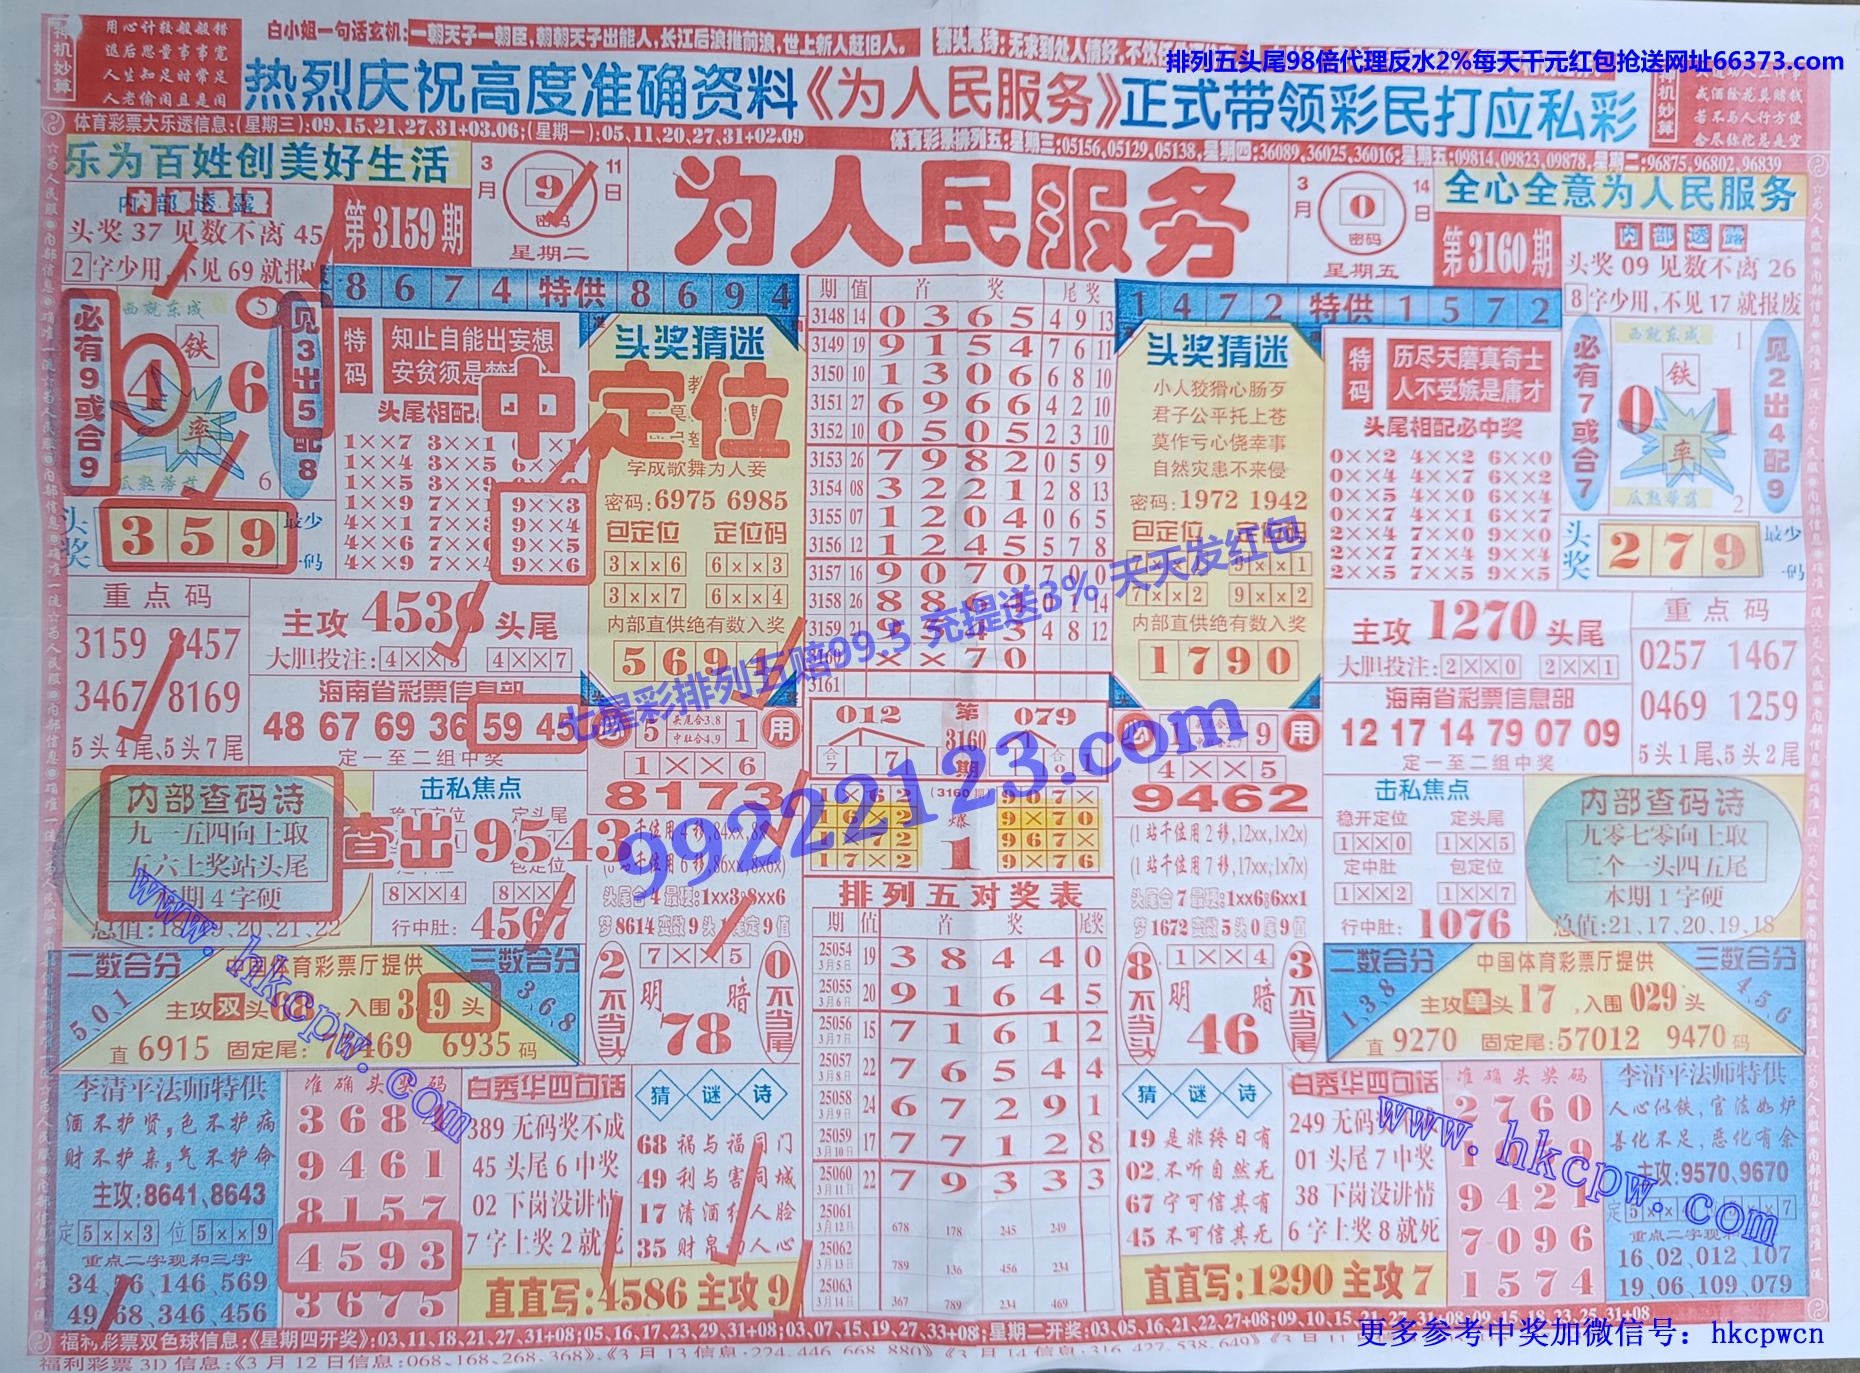 白小姐一句话玄机:一朝天子一朝臣,朝朝天子出能人,长江后浪推前浪,世上新人赶旧人。
排列五头尾98倍代理反水2%每天千元红包抢送网址66373.com
神机妙算
用心计较般般错
退后思量事事宽
人生知足时常足
人老偷闲且是闲
热烈庆祝高度准确资料《为人民服务》正式带领彩民打应私彩
体育彩票大乐透信息:(星期三):09,15,21,27,31+03.06;(星期一):05,11,20,27,31+02.09
体育彩票排列五:星期三:05156,05129,05138,星期四:36089,36025,36016:星期五:09814,09823,09878,星期二:96875,96802,96839
乐为百姓创美好生活
3月 9 密码 11日
星期二
为人民服务
3月 0 密码 14日
星期五
全心全意为人民服务
内部透露
头奖 37 见数不离 45
2 字少用,不见 69 就报
第3159期
第3160期
内部透露
头奖 09 见数不离 26
8 字少用,不见 17 就报废
8 6 7 4 特供 8 6 9 4
必有9或合9
西就东成
铁
4 6
率
瓜熟蒂落
5
6
见3出5配8
头奖 3 5 9 最少一码
特码
知止自能出妄想
头尾相配
1××7 3××1
1××4 3××5
1××5
1××9
4××1
4××6
4××9
9××3
9××4
9××5
9××6
中定位
头奖猜迷
学成歌舞为人妾
密码:6975 6985
包定位 定位码
3××6 6××3
3××7 6××4
内部直供绝有数入奖
5 6 9 4
期 值 首 奖 尾奖
3148 14 0 3 6 5 4 9 13
3149 19 9 1 5 4 7 6 11
3150 10 1 3 0 6 6 8 10
3151 27 6 9 6 6 4 2 10
3152 10 0 5 0 5 2 3 10
3153 26 7 9 8 2 0 5 9
3154 08 3 2 2 1 2 8 13
3155 07 1 2 0 4 0 6 5
3156 12 1 2 4 5 5 7 8
3157 16 9 0 7 0 7 0 0
3158 26 8 8 6 4 0 1 14
3159 21 9 5 4 3 4 8 12
3160 × × 7 0
3161
1 4 7 2 特供 1 5 7 2
头奖猜迷
小人狡猾心肠歹
君子公平托上苍
莫作亏心侥幸事
自然灾患不来侵
密码:1972 1942
包定位 定位码
7××2 9××2
内部直供绝有数入奖
1 7 9 0
特码
历尽天磨真奇士
人不受嫉是庸才
头尾相配必中奖
0××2 4××2 6××0
0××4 4××7 6××2
0××5 4××0 6××4
0××7 4××1 6××7
2××4 7××0 9××0
2××7 7××4 9××4
2××5 7××5 9××5
必有7或合7
西就东成
铁
0 1
率
瓜熟蒂落
1
2
见2出4配9
头奖 2 7 9 最少一码
七星彩排列五赔99.5 充提送3% 天天发红包
99222123.com
重点码
3159 8457
3467 8169
5头4尾、5头7尾
主攻 4536 头尾
大胆投注: 4××3 4××7
海南省彩票信息部
48 67 69 36 59 45
定一至二组中奖
主攻 1270 头尾
大胆投注: 2××0 2××1
海南省彩票信息部
12 17 14 79 07 09
定一至二组中奖
重点码
0257 1467
0469 1259
5头1尾、5头2尾
5 头尾合3.8 中肚合4.9 1 用
1××6
8173
012 第3160期 079
1×62 (3160期) 967×
16×2 爆 9×70
1×72 1 967×
17×2 9×76
9 用
4××5
9462
内部查码诗
九一五四向上取
五六上奖站头尾
本期 4 字硬
总值:18,19,20,21,22
击私焦点
稳开定位 定头尾
查出9543
8××4
行中肚: 4567
千位用4移,84xx,8x
千位用6移,86xx,8x6x)
梦8614变数9头1尾定9值
7××5
(1 站千位用2移,12xx,1x2x)
(1 站千位用7移,17xx,1x7x)
头尾合7最硬:1xx6;6xx1
梦1672变数5头0尾9值
1××4
击私焦点
稳开定位 定头尾
1××0 1××5
定中肚 包定位
1××2 1××7
行中肚: 1076
内部查码诗
九零七零向上取
二个一头四五尾
本期 1 字硬
总值:21,17,20,19,18
排列五对奖表
期 值 首 奖 尾奖
25054 3月5日 19 3 8 4 4 0
25055 3月6日 20 9 1 6 4 5
25056 3月7日 15 7 1 6 1 2
25057 3月8日 22 7 6 5 4 4
25058 3月9日 24 6 7 2 9 1
25059 3月10日 17 7 7 1 2 8
25060 3月11日 22 7 9 3 3 3
25061 3月12日 678 178 245 249
25062 3月13日 789 136 456 234
25063 3月14日 367 789 234 469
二数合分
5,0,1
中国体育彩票厅提供
主攻双头68,入围349头
直 6915 固定尾: 6935 码
三数合分
3,6,8
2不当头
明 暗
78
0不当尾
8不当头
明 暗
46
3不当尾
二数合分
1,3,8
中国体育彩票厅提供
主攻单头17,入围029头
直 9270 固定尾:57012 9470 码
三数合分
4,5,6
李清平法师特供
酒不护贤,色不护病
财不护亲,气不护命
主攻:8641、8643
定 5××3 位 5××9
重点二字现和三字
34,76,146,569
49,68,346,456
准确头奖码
9 4 6 1
8 1 5 7
4 5 9 3
3 6 7 5
白秀华四句话
389 无码奖不成
45 头尾 6 中奖
02 下岗没讲情
7 字上奖 2 就死
猜谜诗
68 祸与福同门
49 利与害同城
17 清酒红人脸
35 财帛动人心
直直写:4586 主攻 9
猜谜诗
19 是非终日有
02 不听自然无
67 宁可信其有
45 不可信其无
白秀华四句话
249 无码奖不成
01 头尾 7 中奖
38 下岗没讲情
6 字上奖 8 就死
直直写:1290 主攻 7
准确头奖码
2 7 6 0
9 4 2 1
7 0 9 6
1 5 7 4
李清平法师特供
人心似铁,官法如炉
善化不足,恶化有余
主攻:9570、9670
重点二字现和
16,02,012,107
19,06,109,079
www.hkcpw.com
www.hkcpw.com
福利彩票双色球信息:《星期四开奖》:03,11,18,21,27,31+08;05,16,17,23,29,31+08;03,07,15,19,27,33+08;星期二开奖:03,05,16,21,22,27+08;09,10,15,21,27,31+08;09,15,18,23,25,31+08
福利彩票3D信息:《3月12日信息:068,168,268,368》,《3月13信息:224,446,668,880》《3月14信息:316,427,538,649》
更多参考中奖加微信号: hkcpwcn